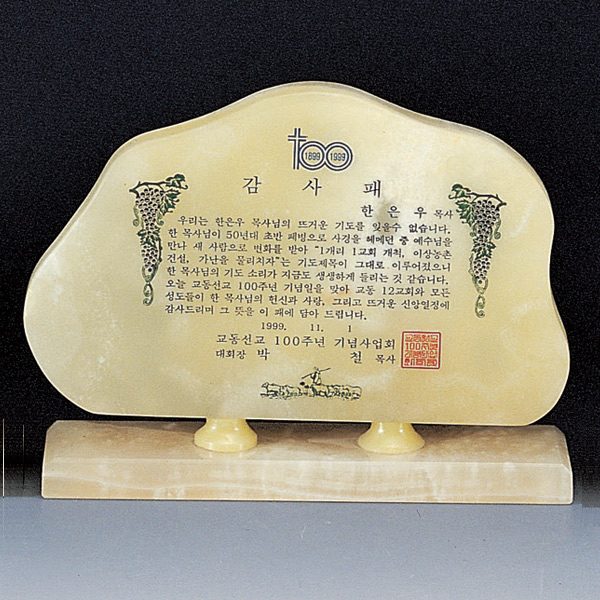 100
1899 1999
감 사 패
한 은 우 목사
우리는 한은우 목사님의 뜨거운 기도를 잊을수 없습니다.
한 목사님이 50년대 초반 폐병으로 사경을 헤메던 중 예수님을
만나 새 사람으로 변화를 받아 "1개리 1교회 개척, 이상농촌
건설, 가난을 물리치자"는 기도제목이 그대로 이루어졌으니
한 목사님의 기도 소리가 지금도 생생하게 들리는 것 같습니다.
오늘 교동선교 100주년 기념일을 맞아 교동 12교회와 모든
성도들이 한 목사님의 헌신과 사랑, 그리고 뜨거운 신앙열정에
감사드리며 그 뜻을 이 패에 담아 드립니다.
1999. 11. 1
교동선교 100주년 기념사업회
대회장 박 철 목사